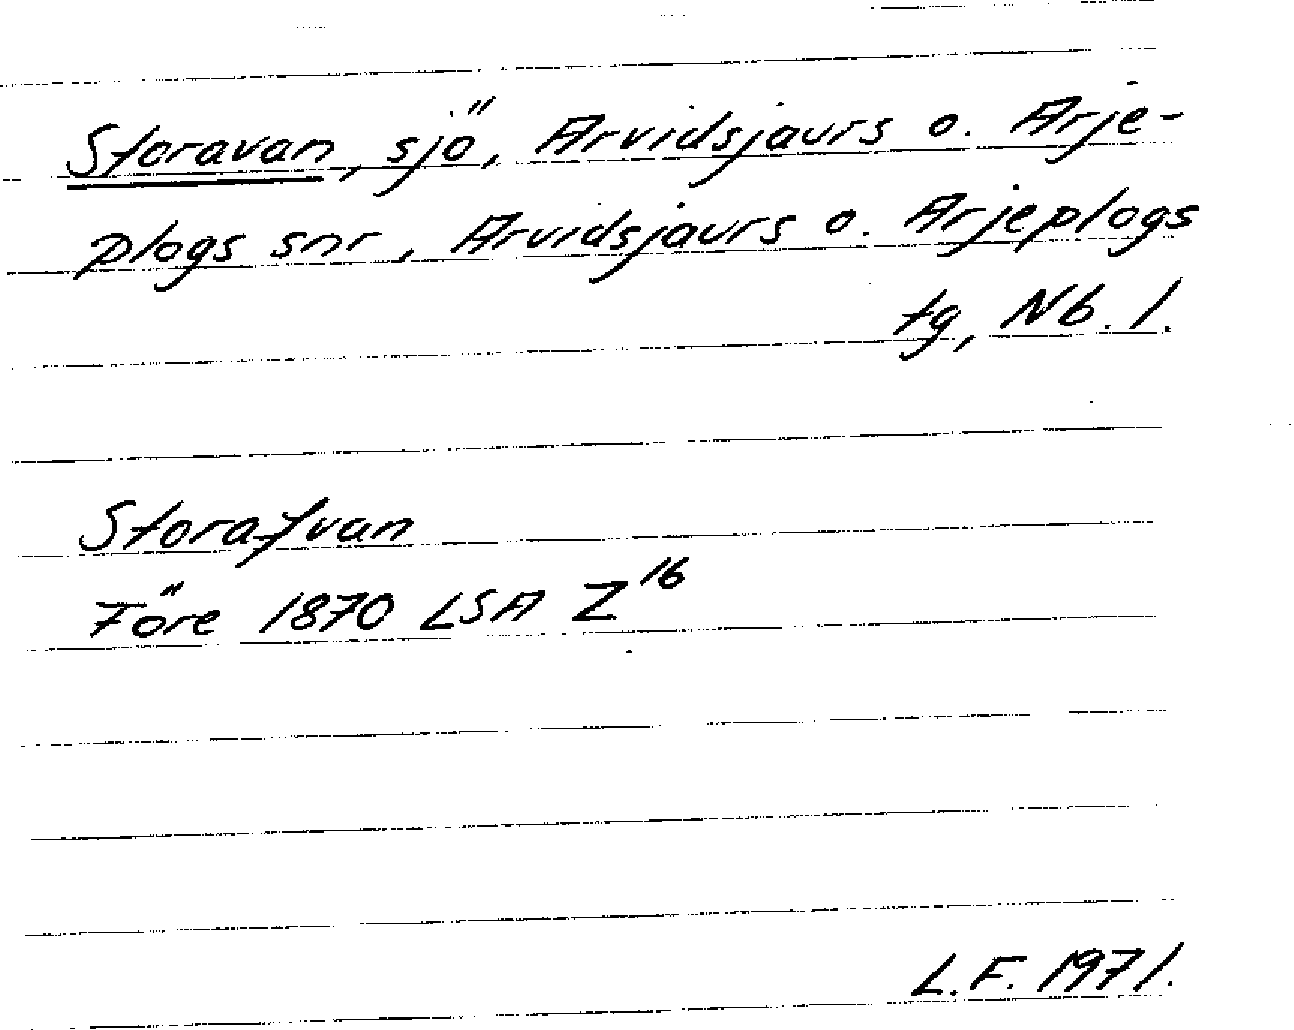 Storavan, sjö, Arvidsjaurs o. Arje-
plogs snr, Arvidsjaurs o. Arjeplogs
tg, Nb. l.
Storafvan
Före 1870 LSA Z16
L.F. 1971.